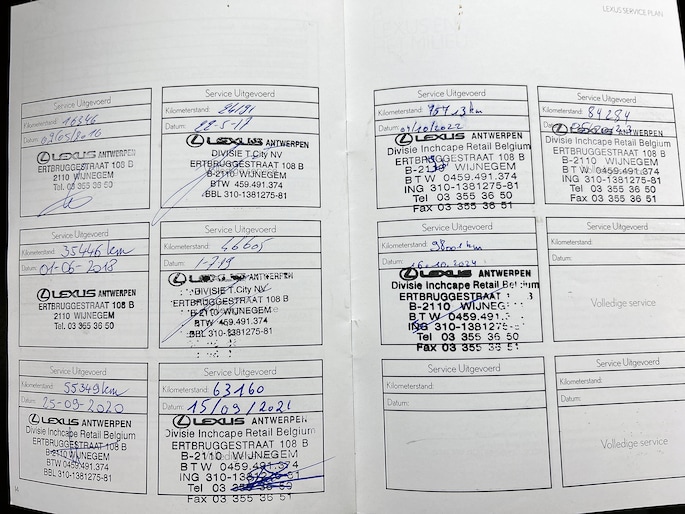 Service Uitgevoerd
Kilometerstand: 16346
Datum: 09/05/2016
LEXUS ANTWERPEN
ERTBRUGGESTRAAT 108 B
2110 WIJNEGEM
Tel. 03 355 36 50
Service Uitgevoerd
Kilometerstand:
Datum: 22-5-17
LEXUS ANTWERPEN
DIVISIE T.City NV
ERTBRUGGESTRAAT 108 B
B-2110 WIJNEGEM
BTW 459.491.374
BBL 310-1381275-81
Service Uitgevoerd
Kilometerstand: 35446 km
Datum: 01-06-2018
LEXUS ANTWERPEN
ERTBRUGGESTRAAT 108 B
2110 WIJNEGEM
Tel. 03 355 36 50
Service Uitgevoerd
Kilometerstand: 46605
Datum:
LEXUS ANTWERPEN
DIVISIE T.City NV
ERTBRUGGESTRAAT 108 B
B-2110 WIJNEGEM
BTW 459.491.374
BBL 310-1381275-81
Service Uitgevoerd
Kilometerstand: 55349 km
Datum: 25-09-2020
LEXUS ANTWERPEN
Divisie Inchcape Retail Belgium
ERTBRUGGESTRAAT 108 B
B-2110 WIJNEGEM
BTW 0459.491.374
BBL 310-1381275-81
Service Uitgevoerd
Kilometerstand: 63160
Datum: 15/09/2021
LEXUS ANTWERPEN
Divisie Inchcape Retail Belgium
ERTBRUGGESTRAAT 108 B
B-2110 WIJNEGEM
BTW 0459.491.374
ING 310-1381275-81
Tel 03 355 36 50
Fax 03 355 36 51
14
LEXUS SERVICE PLAN
Service Uitgevoerd
Kilometerstand: km
Datum: 04/10/2022
LEXUS ANTWERPEN
Divisie Inchcape Retail Belgium
ERTBRUGGESTRAAT 108 B
B-2110 WIJNEGEM
BTW 0459.491.374
ING 310-1381275-81
Tel 03 355 36 50
Fax 03 355 36 51
Service Uitgevoerd
Kilometerstand: 84284
Datum:
LEXUS ANTWERPEN
Divisie Inchcape Retail Belgium
ERTBRUGGESTRAAT 108 B
B-2110 WIJNEGEM
BTW 0459.491.374
ING 310-1381275-81
Tel 03 355 36 50
Fax 03 355 36 51
Service Uitgevoerd
Kilometerstand: km
Datum: 16-10-2024
LEXUS ANTWERPEN
Divisie Inchcape Retail Belgium
ERTBRUGGESTRAAT
B-2110 WIJNEGEM
BTW 0459.491.
ING 310-1381275-
Tel 03 355 36 50
Fax 03 355 36 51
Service Uitgevoerd
Kilometerstand:
Datum:
Volledige service
Service Uitgevoerd
Kilometerstand:
Datum:
Service Uitgevoerd
Kilometerstand:
Datum:
Volledige service